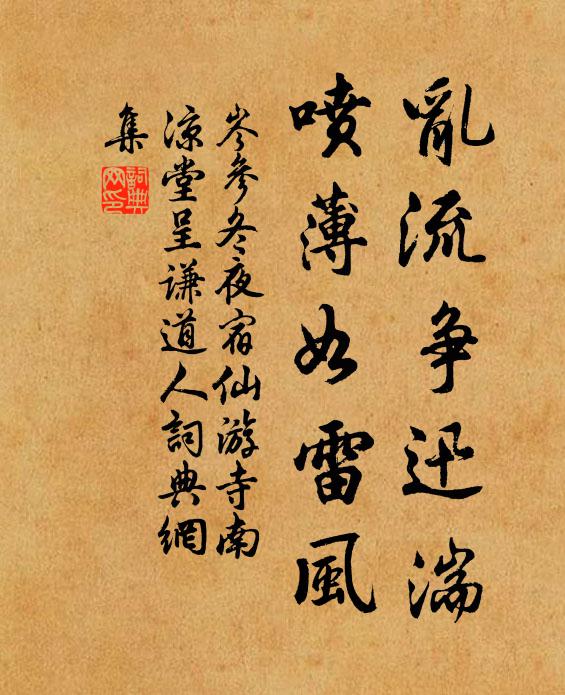 亂流争迅湍
噴薄如雷風
岑參冬夜宿仙游寺南
涼堂呈謙道人詞典網
集
詞典網印